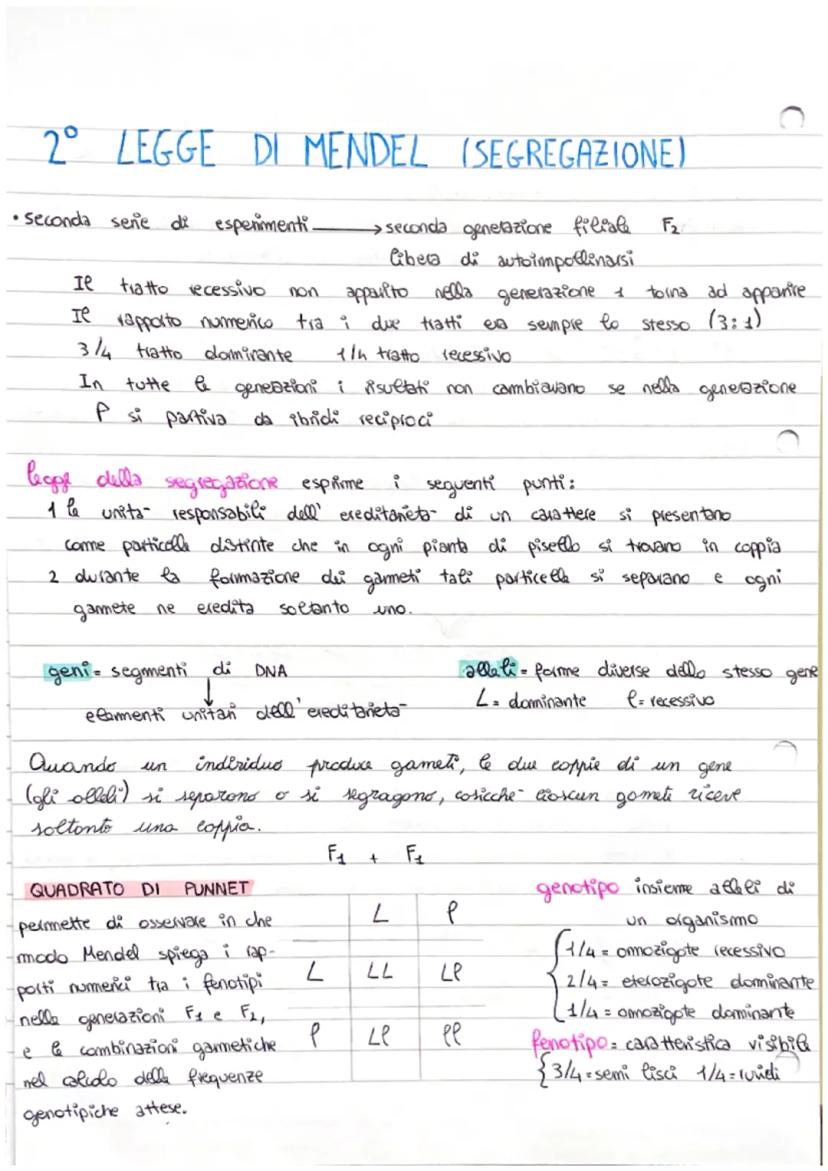 2° LEGGE DI MENDEL (SEGREGAZIONE)
• seconda serie di esperimenti → seconda generazione filiale F2
libera di autoimpollinarsi
Il tratto recessivo non apparito nella generazione 1 torna ad apparire
Il rapporto numerico tra i due tratti era sempre lo stesso (3:1)
3/4 tratto dominante 1/4 tratto recessivo
In tutte le generazioni i risultati non cambiavano se nella generazione
P si partiva da ibridi reciproci
legge della segregazione esprime i seguenti punti:
1 le unita- responsabili dell' ereditarieta- di un carattere si presentano
come particelle distinte che in ogni pianta di pisello si trovano in coppia
2 durante la formazione dei gameti tali particelle si separano e ogni
gamete ne eredita soltanto uno.
geni = segmenti di DNA
↓
elementi unitari dell' ereditarieta-
alleli = forme diverse dello stesso gene
L = dominante l = recessivo
Quando un individuo produce gameti, le due coppie di un gene
(gli alleli) si separono o si segragono, cosicche- ciascun gameti riceve
soltanto una coppia.
F1 + F1
QUADRATO DI PUNNET
permette di osservare in che
modo Mendel spiega i rap-
porti numerici tra i fenotipi
nelle generazioni F1 e F2,
e le combinazioni gametiche
nel calcolo delle frequenze
genotipiche attese.
L l
L LL Ll
l Ll ll
genotipo insieme alleli di
un organismo
1/4 = omozigote recessivo
2/4 = eterozigote dominante
1/4 = omozigote dominante
fenotipo = caratteristica visibile
{3/4 = semi lisci 1/4 = ruvidi